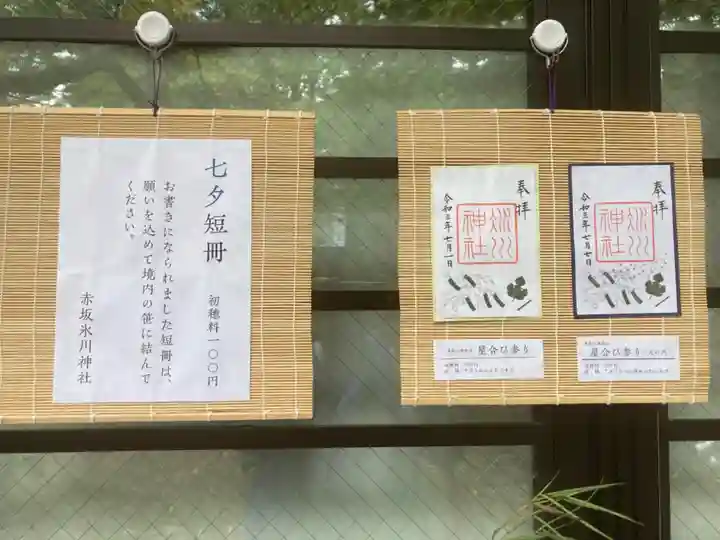 七夕短冊
初穂料一〇〇円
お書きになられました短冊は、
願いを込めて境内の笹に結んで
ください。
赤坂氷川神社
奉拝
氷川
神社
令和三年七月一日
星合ひ参り
奉拝
氷川
神社
令和三年七月七日
星合ひ参り